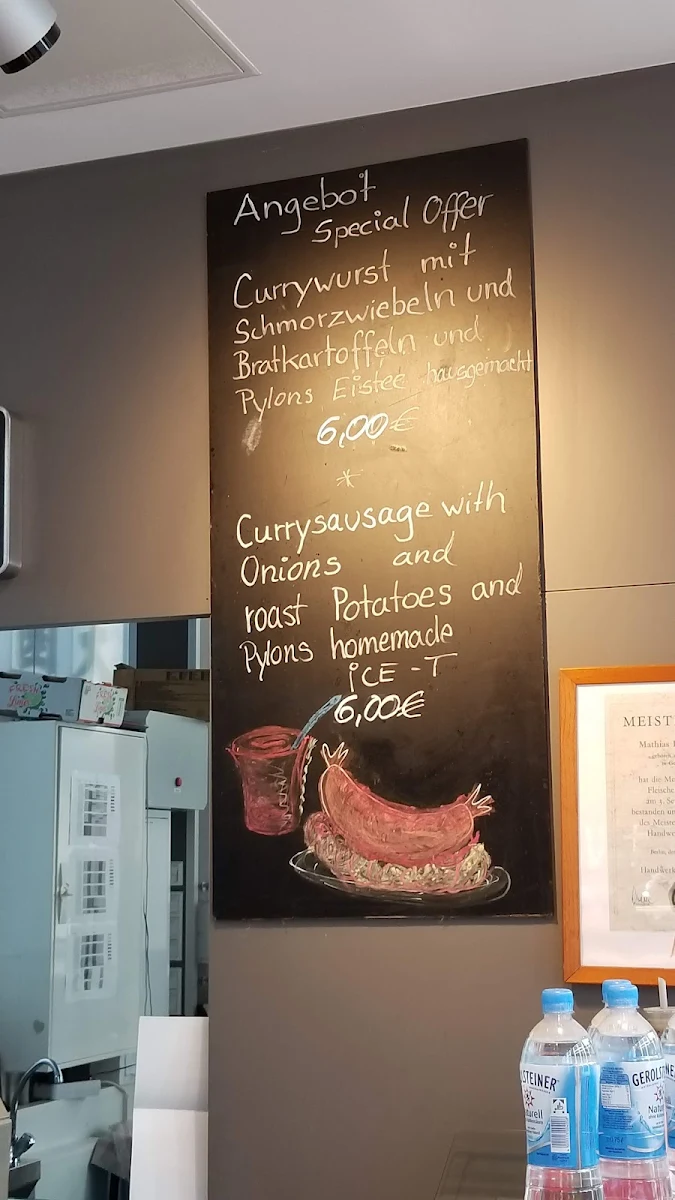 Angebot
Special Offer
Currywurst mit
Schmorzwiebeln und
Bratkartoffeln und
Pylons Eistee hausgemacht
6,00€
*
Currysausage with
Onions and
roast Potatoes and
Pylons homemade
iCE-T
6,00€
MEIST
Mathias
hat die Me
Fleische
am 3. Se
bestanden un
des Meister
Handwe
Berlin, de
Handwerk
STEINER
turell
GEROLSTEINE
Natu